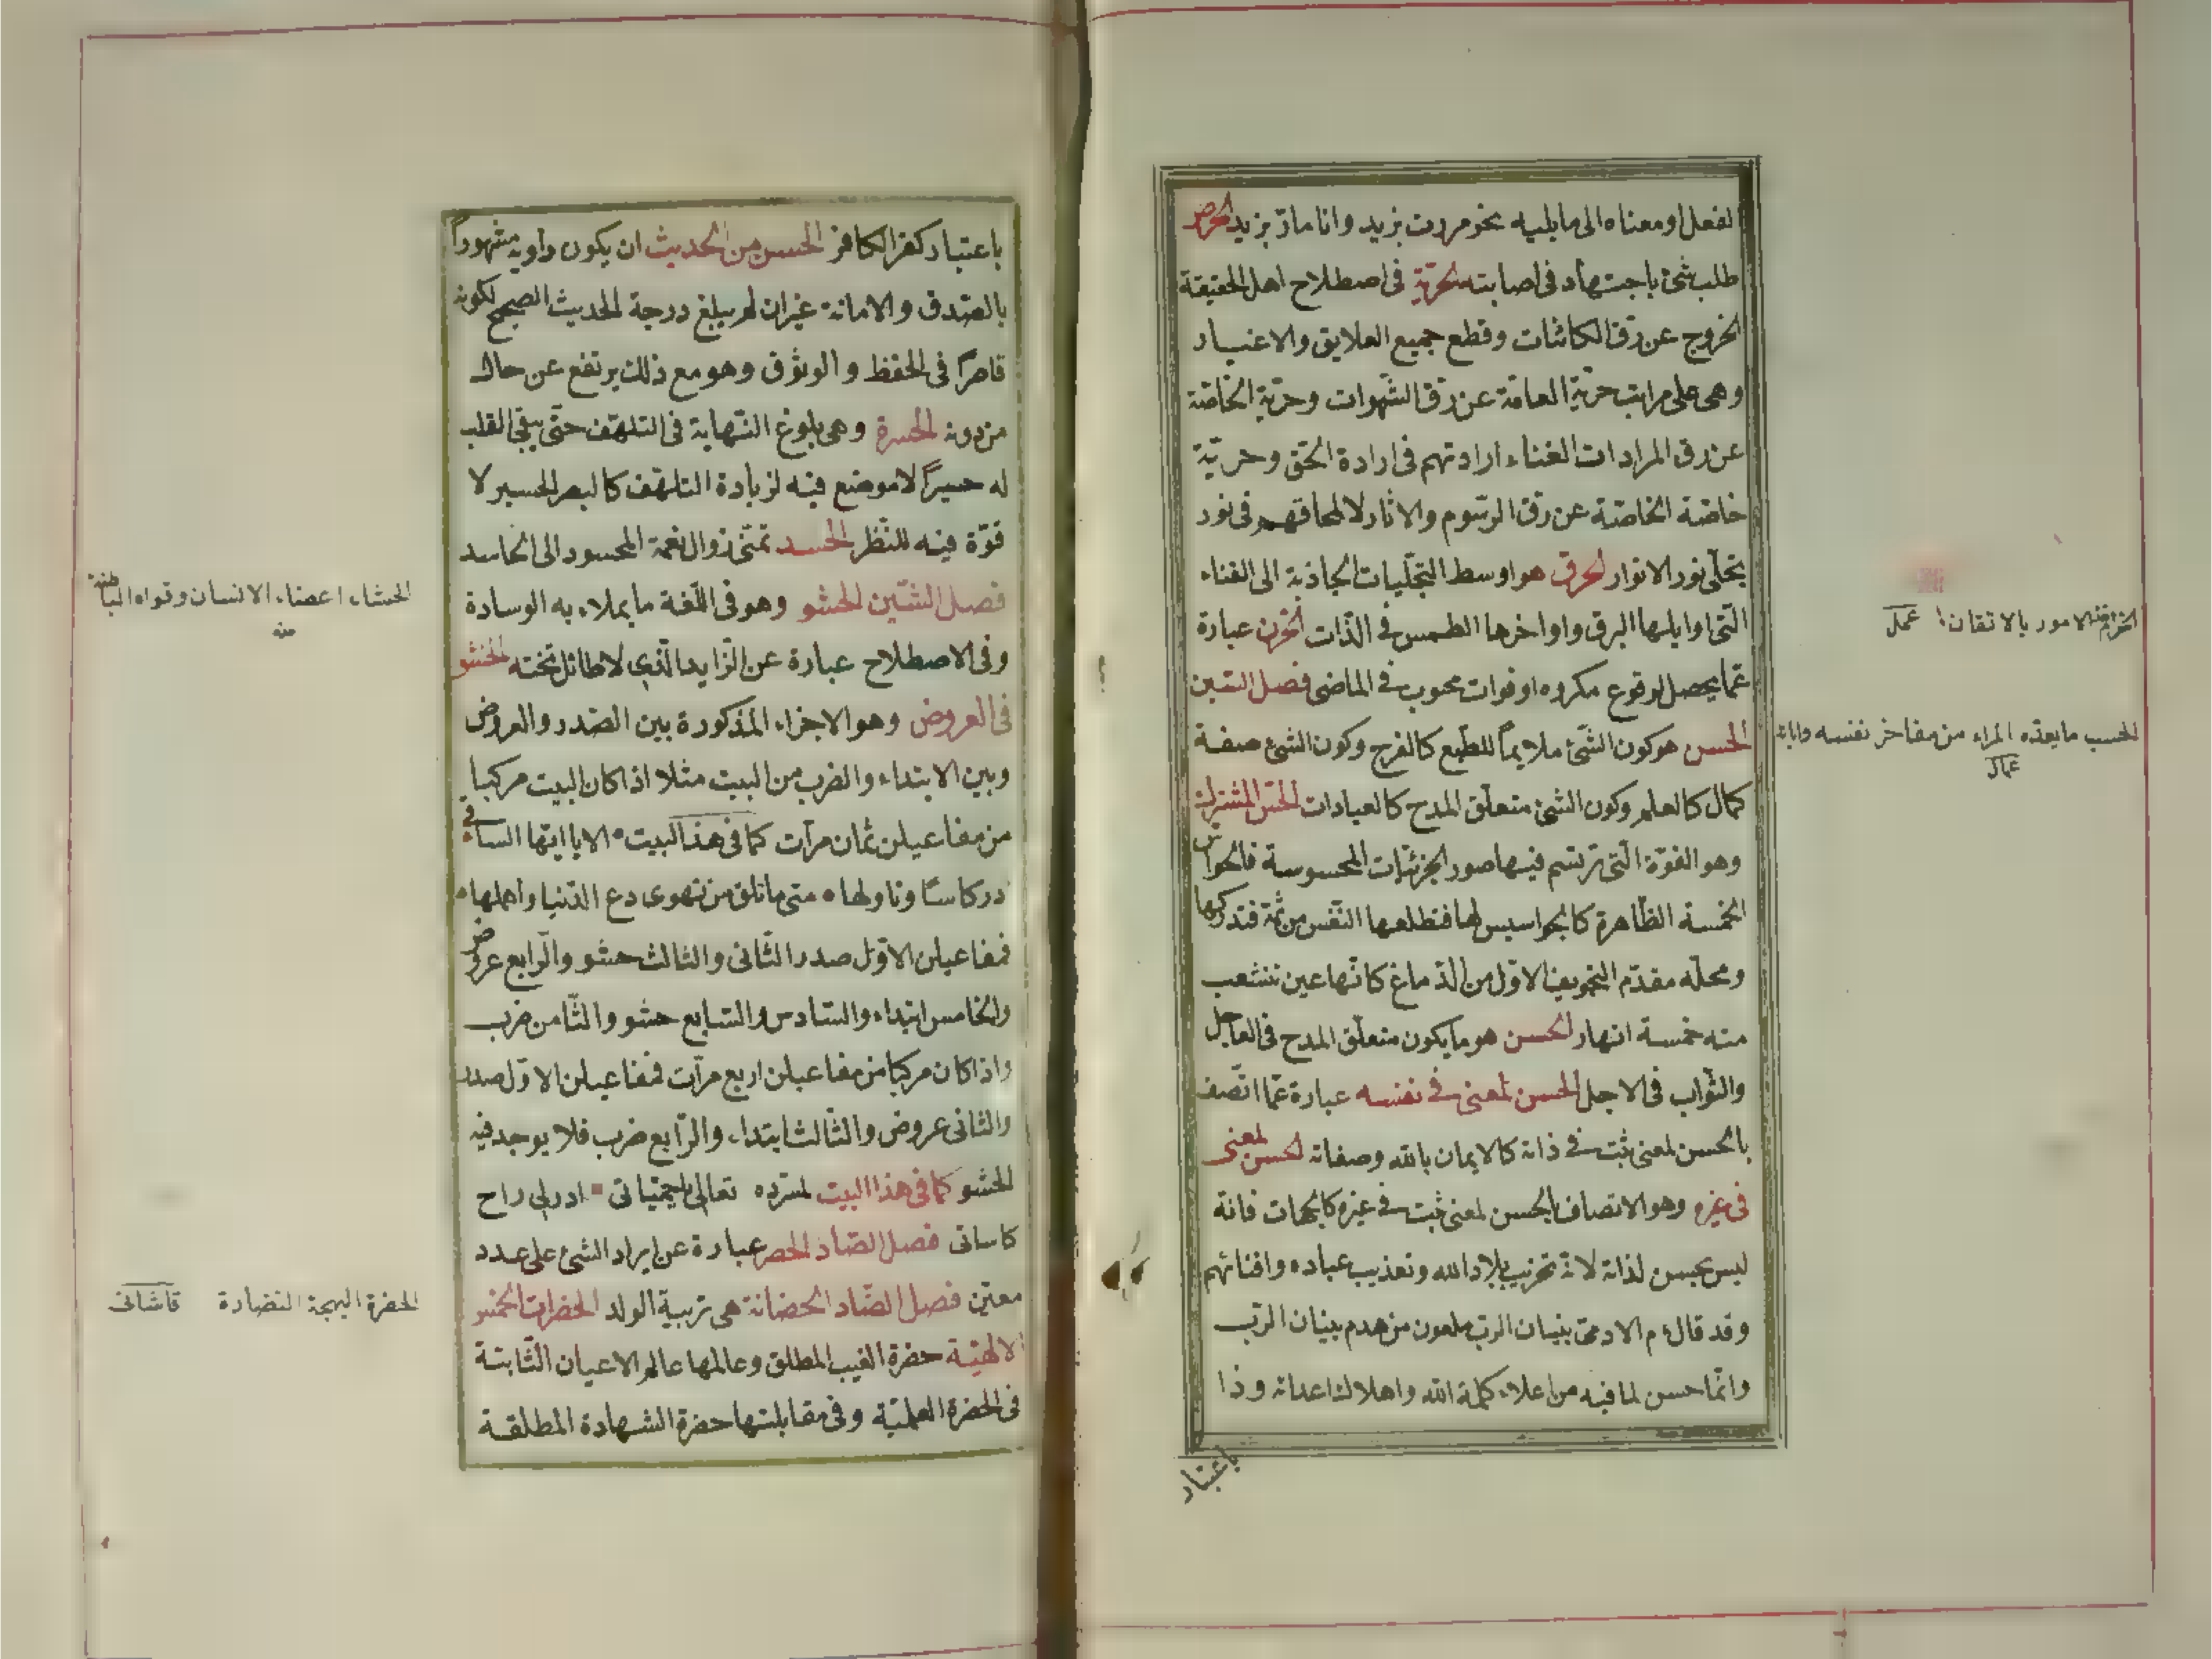 الفعل او معناه الى مايليه نحو مررت بزيد وانا مارّ بزيد الحرص
طلب شئ باجتهاد فى اصابته الحرّيّة فى اصطلاح اهل الحقيقة
الخروج عن رقّ الكائنات وقطع جميع العلايق والاغيار
وهى على مراتب حرّيّة العامّة عن رقّ الشّهوات وحرّيّة الخاصّة
عن رق المرادات الفناء ارادتهم فى ارادة الحقّ وحرّيّة
خاصّة الخاصّة عن رقّ الرّسوم والاثار لانمحاقهم فى نور
تجلّى نور الانوار الحرق هو اوسط التجلّيات الجاذبة الى الفناء
الّتى اوايلها البرق واواخرها الطمس فى الذّات الحزن عبارة
عمّا يحصل لوقوع مكروه او فوات محبوب فى الماضى فصل السّين
الحسن هو كون الشّئ ملايماً للطّبع كالفرح وكون الشئ صفة
كمال كالعلم وكون الشئ متعلّق المدح كالعبادات الحسّ المشترك
وهو القوّة الّتى ترتسم فيها صور الجزئيّات المحسوسة فالحواسّ
الخمسة الظّاهرة كالجواسيس لها فتطلعها النّفس من ثمّة فتدركها
ومحلّه مقدّم التجويف الاوّل من الدّماغ كانّها عين تنشعب
منه خمسة انهار الحسن هو ما يكون متعلّق المدح فى العاجل
والثّواب فى الاجل الحسن لمعنى فى نفسه عبارة عمّا اتّصف
بالحسن لمعنى ثبت فى ذاته كالايمان بالله وصفاته الحسن لمعنى
فى غيره وهو الاتصاف بالحسن لمعنى ثبت فى غيره كالجهات فانّه
ليس بحسن لذاته لانّه تخريب بلاد الله وتعذيب عباده وافنائهم
وقد قال م الادمىّ بنيان الربّ ملعون من هدم بنيان الرّب
وانّما حسن لما فيه من اعلاء كلمة الله واهلاك اعدائه وذا
باعتبار
الامور بالاتقان
الحسب ما يعدّه المراء من مفاخر نفسه واباءه
باعتبار كفر الكافر الحسن من الحديث ان يكون راويه مشهوراً
بالصّدق والامانة غير ان لم يبلغ درجة الحديث الصحيح لكونه
قاصرًا فى الحفظ والوثوق وهو مع ذلك يرتفع عن حال
من دونه الحسرة وهى بلوغ النّهاية فى التلهّف حتّى يبقى القلب
له حسيرًا لا موضع فيه لزيادة التلهّف كالبصر الحسير لا
قوّة فيه للنّظر الحسد تمنّى زوال نعمة المحسود الى الحاسد
فصل الشّين الحشو وهو فى اللّغة ما يملاء به الوسادة
وفى الاصطلاح عبارة عن الزّايد الّذى لا طائل تحته الحشو
فى العروض وهو الاجزاء المذكورة بين الصّدر والعروض
وبين الابتداء والضرب من البيت مثلا اذا كان البيت مركبا
من مفاعيلن ثمان مرّات كما فى هذا البيت الا يا ايّها السّاقى
ادر كاسًا وناولها متى ما تلق من تهوى دع الدّنيا واهملها
فمفاعيلن الاوّل صدر الثّانى والثالث حشو والرّابع عروض
والخامس ابتداء والسّادس والسّابع حشو والثّامن ضرب
واذا كان مركبا من مفاعيلن اربع مرّات فمفاعيلن الاوّل صدر
والثانى عروض والثّالث ابتداء والرّابع ضرب فلا يوجد فيه
الحشو كما فى هذا البيت تعالى ادرلى راح
كاساتى فصل الصّاد الحصر عبارة عن ايراد الشئ على عدد
معيّن فصل الضّاد الحضانة هى تربية الولد الحضرات الخمس
الالهيّة حضرة الغيب المطلق وعالمها عالم الاعيان الثّابتة
فى الحضرة العلميّة وفى مقابلتها حضرة الشهادة المطلقة
الحشاء اعضاء الانسان وقواه الباطنة
منه
الحضرة البهجة النضارة قاشانى